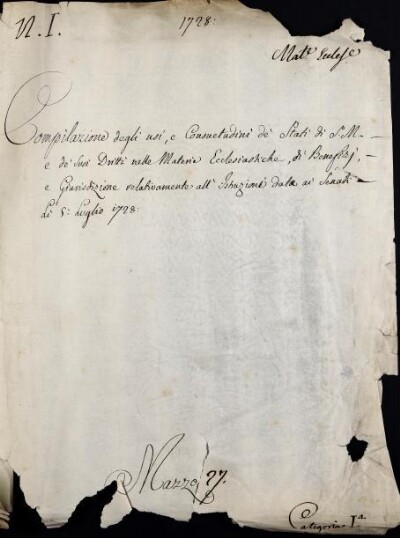 N. I.
1728.
Mat.e Eccles.e
Compilazione degli usi, e Consuetudini de' Stati di S. M.
e de' suoi Dritti nelle Materie Ecclesiastiche, di Benefizj,
e Giurisdizione relativamente all' Istruzioni date ai Senati
li 5: Luglio 1728.
Mazzo 27.
Categoria I.a